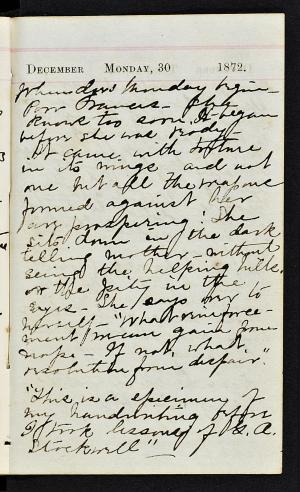 December Monday, 30 1872.
Monday begins
Poor Francis
Knows too soon. It began
before she was ready
It came with torture
in its wings and not
one but all the weapons
formed against her
are prospering. She
sits down in the dark
telling mother without
seeing the helping hills
or the pity in the
eyes. She says over to
herself "What reinforce-
ment we may gain from
hope - If not, what
resolution from despair".
"This is a specimen of
my handwriting before
I took lessons of G. A.
Stockwell"